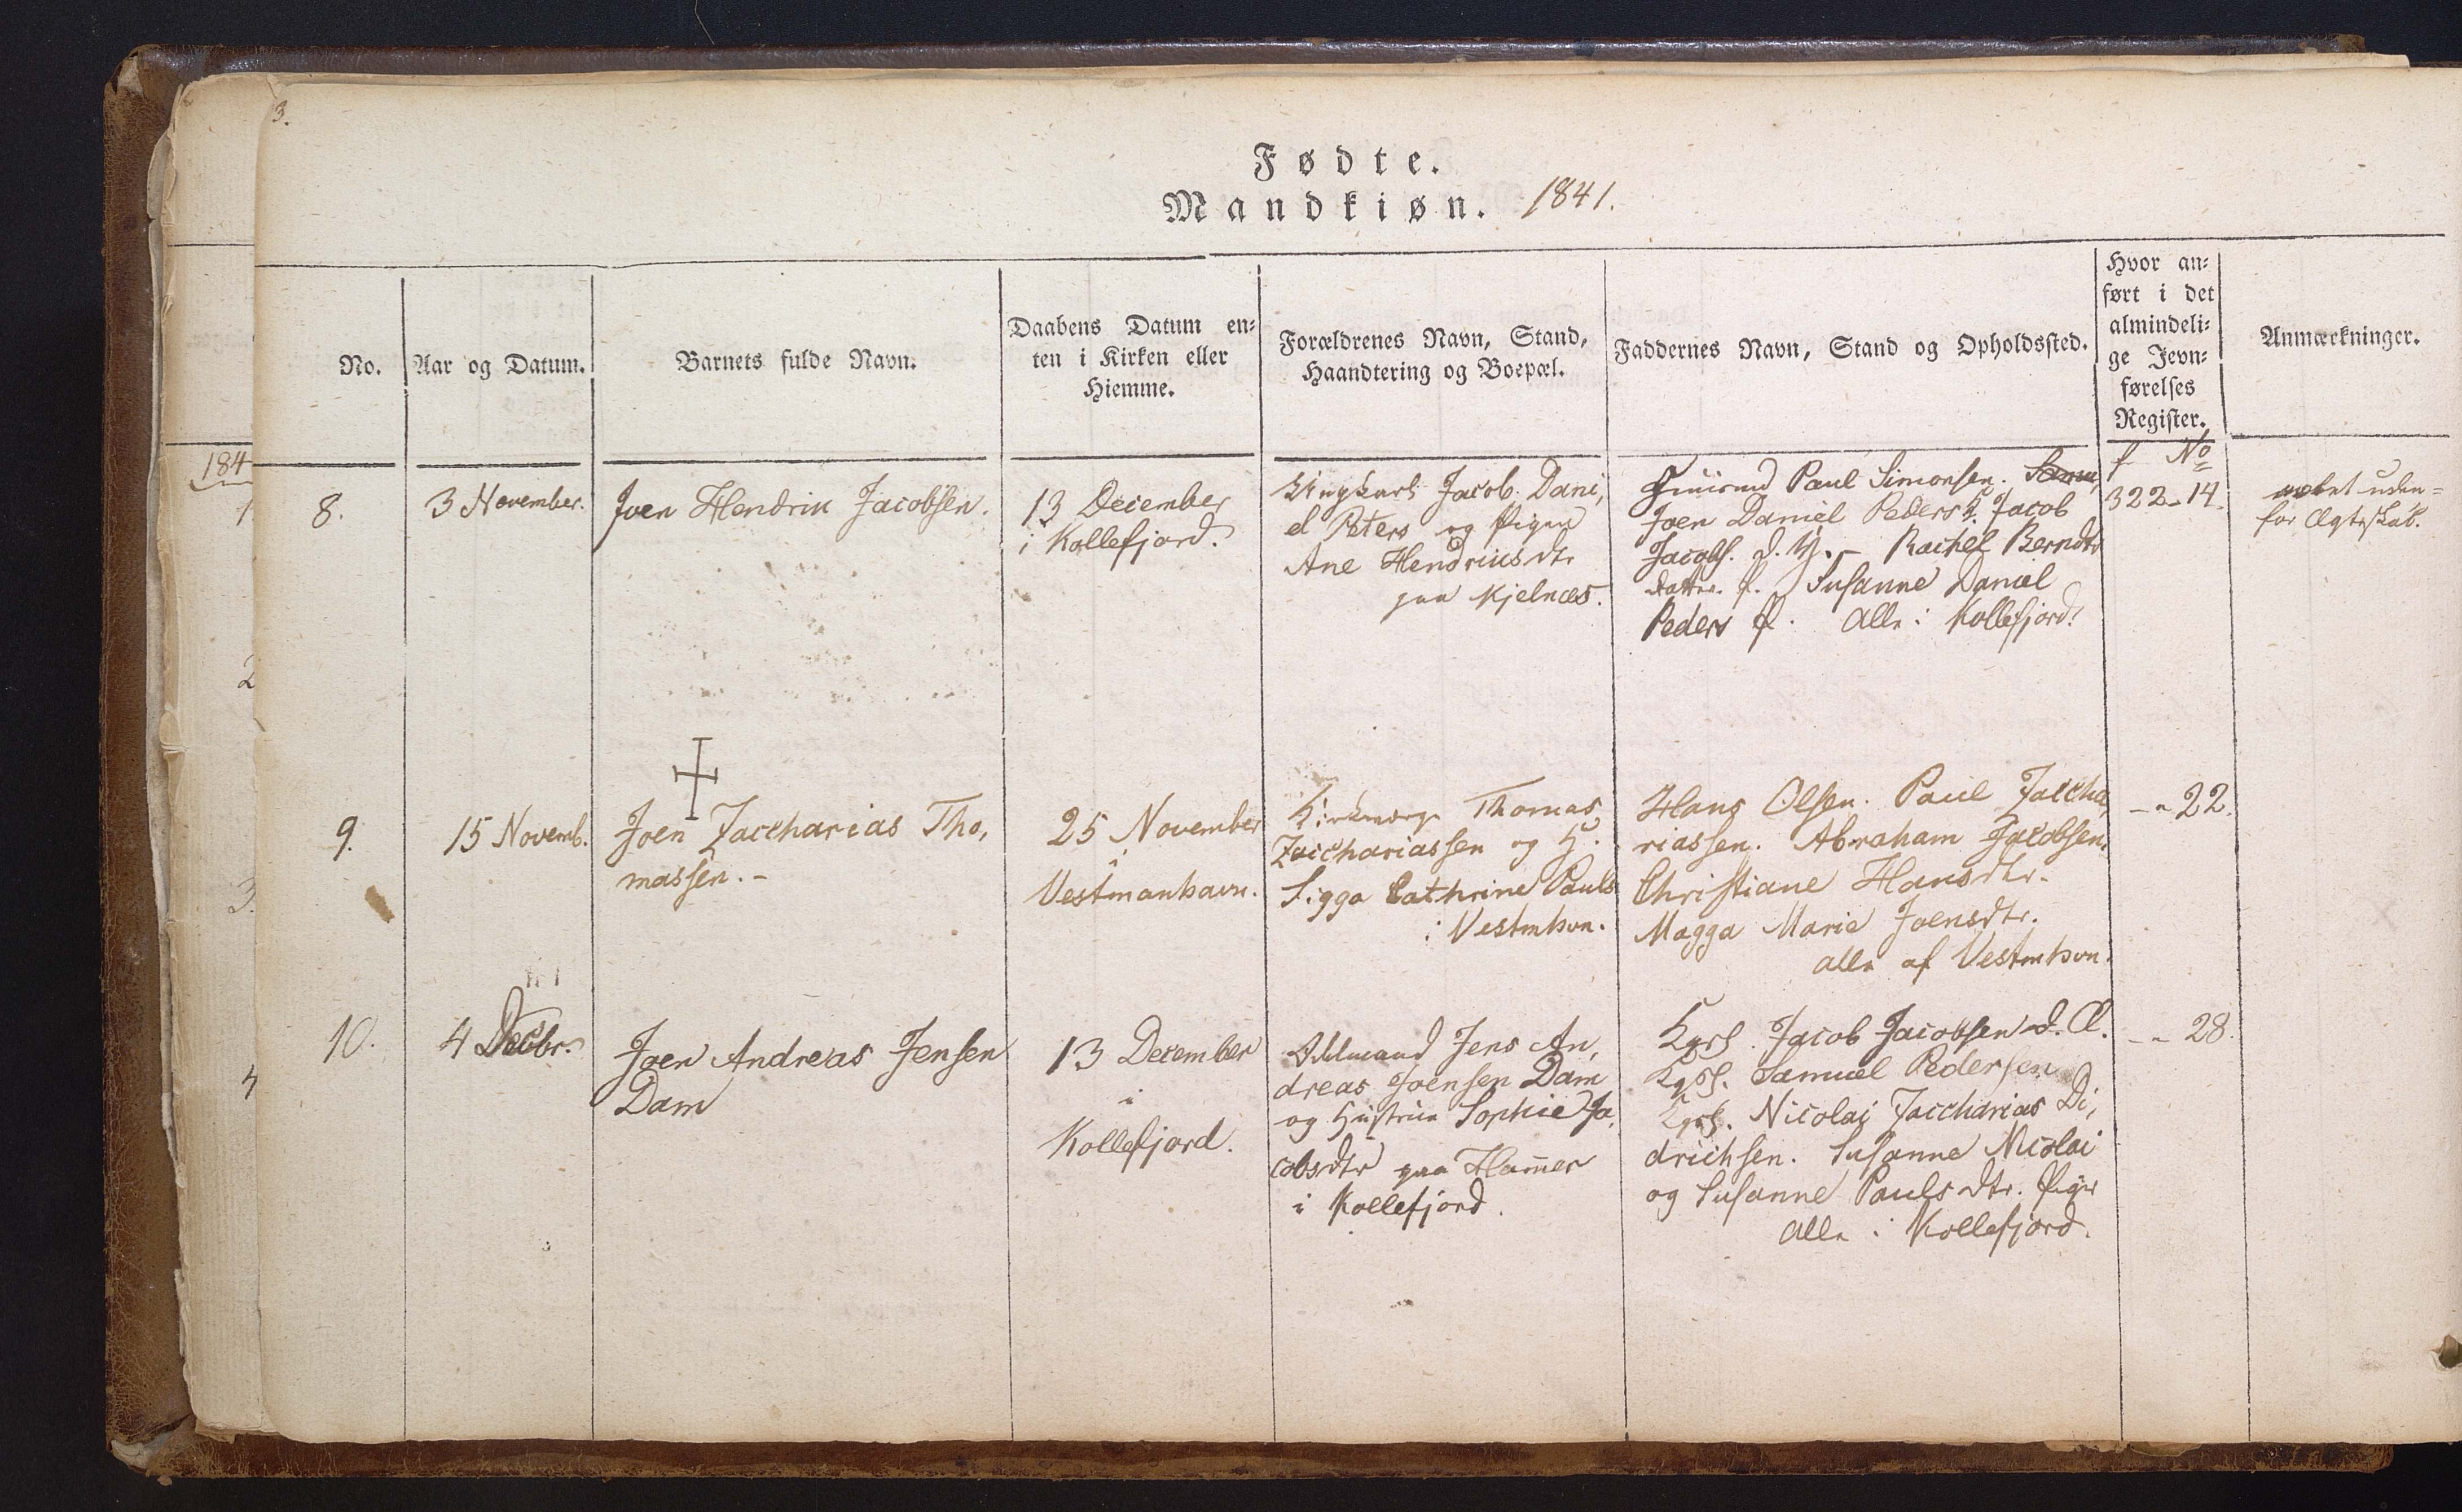 3.
Fødte.
Mandkiøn. 1841.
No.
Aar og Datum.
Barnets fulde Navn.
Daabens Datum en-
ten i Kirken eller
Hiemme.
Forældrenes Navn, Stand,
Haandtering og Boepæl.
Faddernes Navn, Stand og Opholdssted.
Hvor an-
ført i det
almindeli-
ge Jevn-
førelses
Register.
Anmærkninger.
184
1.
2
3.
4
8.
3 November.
Joen Hendrik Jacobsen.
13 December
i Kollefjord.
Ungkarl Jacob Dani,
el Peters og Pigen
Ane Hendriksdtr
paa Kjelnæs.
Paul Simonsen.
Joen Daniel Peders K. Jacob
Jacobs. d. Y. - Rachel Berndts
datter. P. Susanne Daniel
Peders P. Alle i Kollefjord.
f No
322-14.
avlet uden-
for Ægteskab.
9.
15 Novemb.
Joen Zaccharias Tho,
massen. -
25 November
i
Vestmanhavn.
Kirkeværge Thomas
Zacchariassen og H.
Sigga Cathrine Pauls
i Vestmhvn.
Hans Olsen. Paul Zaccha,
riassen. Abraham Jacobsen.
Christiane Hansdtr.
Magga Marie Joensdtr.
alle af Vestmhvn.
- " 22.
10.
4 Decbr.
Joen Andreas Jensen
Dam
13 December
i
Kollefjord.
Jens An,
dreas Joensen Dam
og Hustrue Sophie Ja,
cobsdtr paa Ham̄er
i Kollefjord.
Kgsf. Jacob Jacobsen d. Æ.
Kgsf. Samuel Pedersen
Kgsf. Nicolai Zaccharias Di,
drichsen. Susanne Nicolai
og Susanne Paulsdtr. Piger
Alle i Kollefjord.
- " 28.